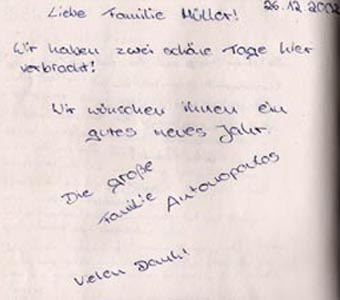 26.12.2002
Liebe Familie Müller!
Wir haben zwei schöne Tage hier
verbracht!
Wir wünschen ihnen ein
gutes neues Jahr.
Die große
Familie Antonopoulos
Vielen Dank!